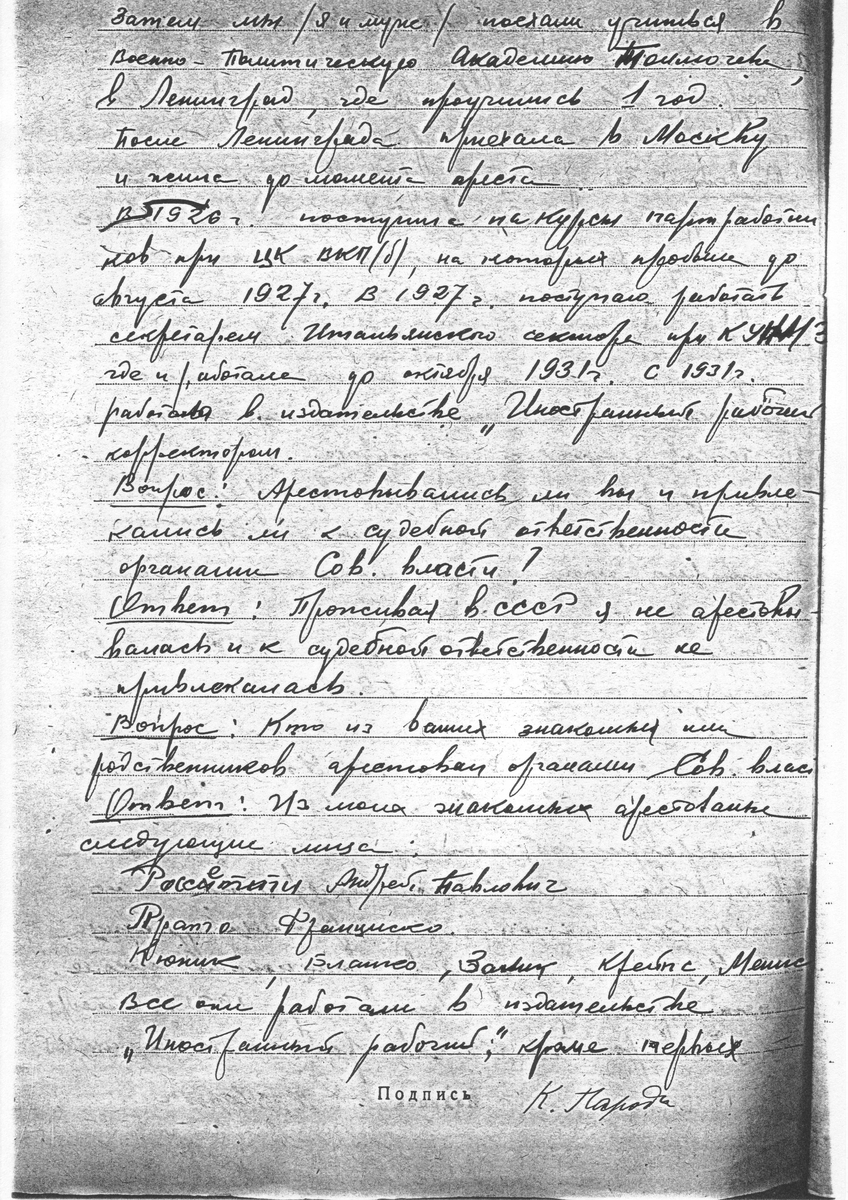 Затем мы /я и муж/ поехали учиться в
Военно-Политическую Академию Толмачева,
в Ленинград, где проучились 1 год.
После Ленинграда приехала в Москву
и жила до момента ареста
В 1926 г. поступила на курсы партработни
ков при ЦК ВКП(б), на которых пробыла до
августа 1927 г. В 1927 г. поступаю работать
секретарем Итальянского сектора при КУНМЗ
где и работала до октября 1931 г. С 1931 г.
работала в издательстве „Иностранный рабочий
корректором.
Вопрос: Арестовывались ли вы и привле-
кались ли к судебной ответственности
органами Сов. власти?
Ответ: Проживая в СССР я не арестовы-
валась и к судебной ответственности не
привлекалась.
Вопрос: Кто из ваших знакомых или
родственников арестован органами Сов. власт
Ответ: Из моих знакомых арестованы
следующие лица:
Андрей Павлович
Франциско.
Бланко, Крейпс,
Все они работали в издательстве
„Иностранный рабочий", кроме первых
Подпись К. Пароди